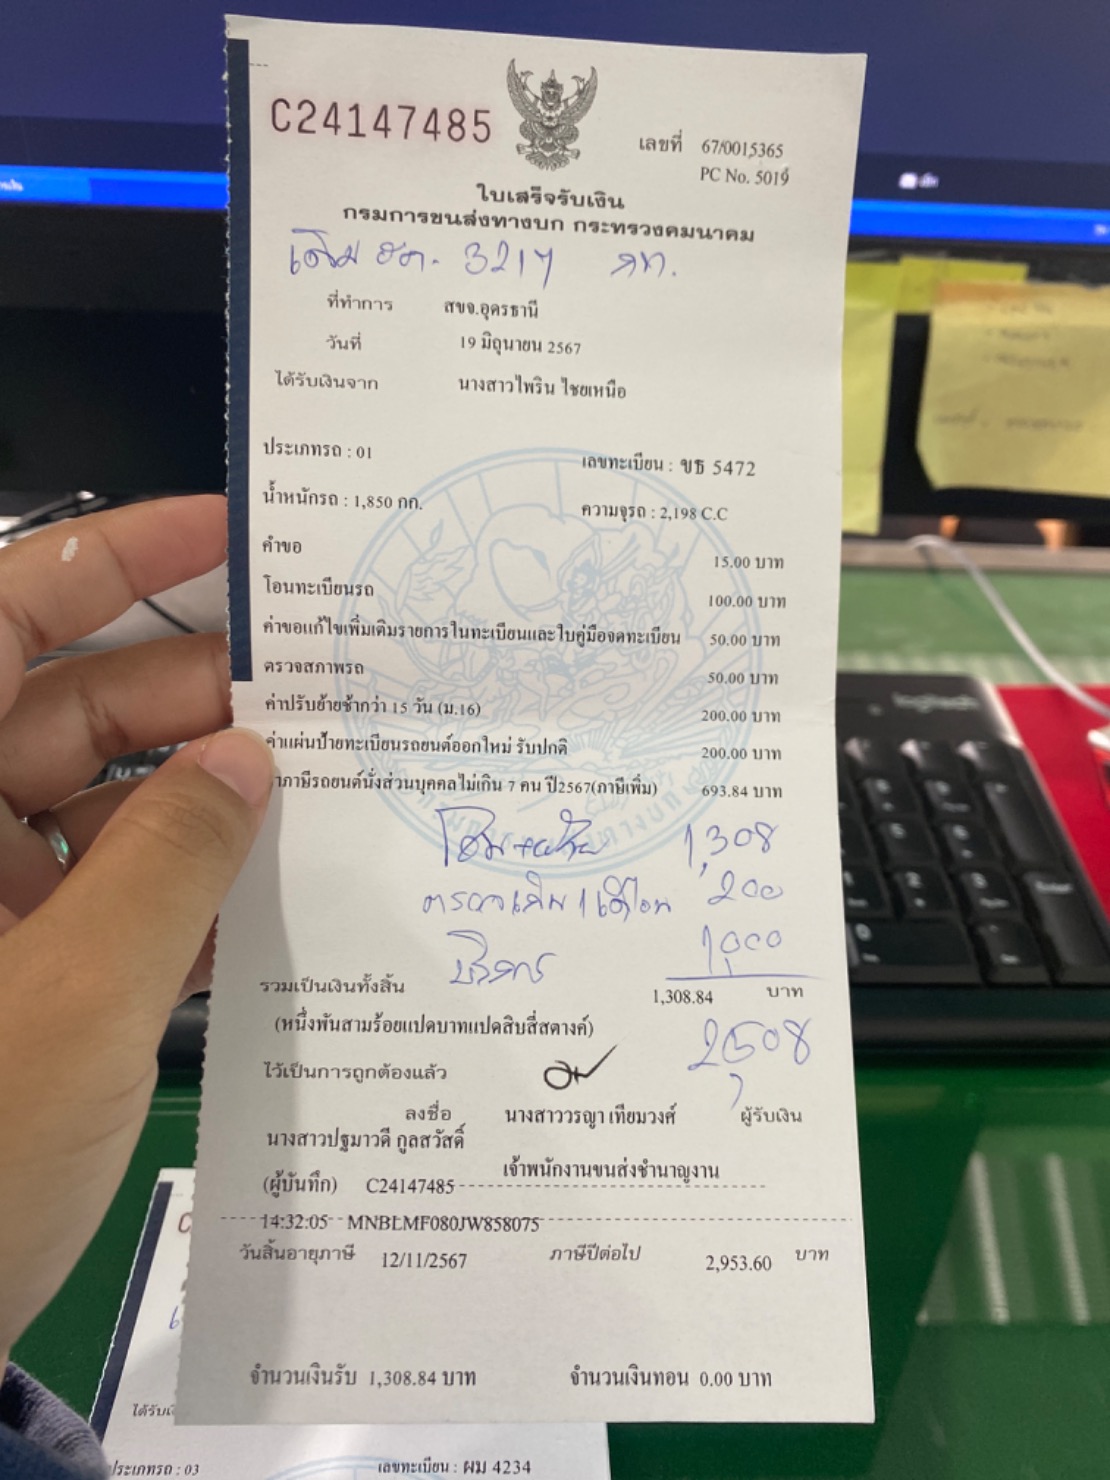 C24147485
เลขที่ 67/0015365
PC No. 5019
ใบเสร็จรับเงิน
กรมการขนส่งทางบก กระทรวงคมนาคม
เดิม 3217 กท.
ที่ทำการ สขจ.อุดรธานี
วันที่ 19 มิถุนายน 2567
ได้รับเงินจาก นางสาวไพริน ไชยเหนือ
ประเภทรถ : 01 เลขทะเบียน : ขธ 5472
น้ำหนักรถ : 1,850 กก. ความจุรถ : 2,198 C.C
คำขอ 15.00 บาท
โอนทะเบียนรถ 100.00 บาท
ค่าขอแก้ไขเพิ่มเติมรายการในทะเบียนและใบคู่มือจดทะเบียน 50.00 บาท
ตรวจสภาพรถ 50.00 บาท
ค่าปรับย้ายช้ากว่า 15 วัน (ม.16) 200.00 บาท
ค่าแผ่นป้ายทะเบียนรถยนต์ออกใหม่ รับปกติ 200.00 บาท
าภาษีรถยนต์นั่งส่วนบุคคลไม่เกิน 7 คน ปี2567(ภาษีเพิ่ม) 693.84 บาท
โอน+ย้าย 1,308
ตรวจเกิน 1 เดือน 200
บริการ 1,000
รวมเป็นเงินทั้งสิ้น 1,308.84 บาท
(หนึ่งพันสามร้อยแปดบาทแปดสิบสี่สตางค์)
2,508
ไว้เป็นการถูกต้องแล้ว
ลงชื่อ นางสาววรญา เทียมวงศ์ ผู้รับเงิน
นางสาวปฐมาวดี กูลสวัสดิ์
เจ้าพนักงานขนส่งชำนาญงาน
(ผู้บันทึก) C24147485
14:32:05 MNBLMF080JW858075
วันสิ้นอายุภาษี 12/11/2567 ภาษีปีต่อไป 2,953.60 บาท
จำนวนเงินรับ 1,308.84 บาท จำนวนเงินทอน 0.00 บาท
ประเภทรถ : 03 เลขทะเบียน : ผม 4234
logitech